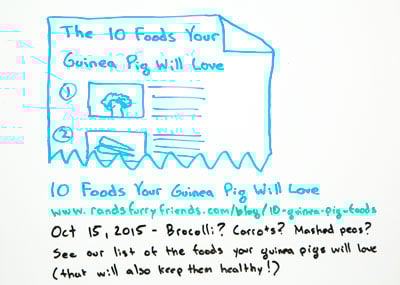 The 10 Foods Your
Guinea Pig Will Love
1
2
10 Foods Your Guinea Pig Will Love
www.randsfurryfriends.com/blog/10-guinea-pig-foods
Oct 15, 2015 - Brocolli? Carrots? Mashed peas?
See our list of the foods your guinea pigs will love
(that will also keep them healthy!)